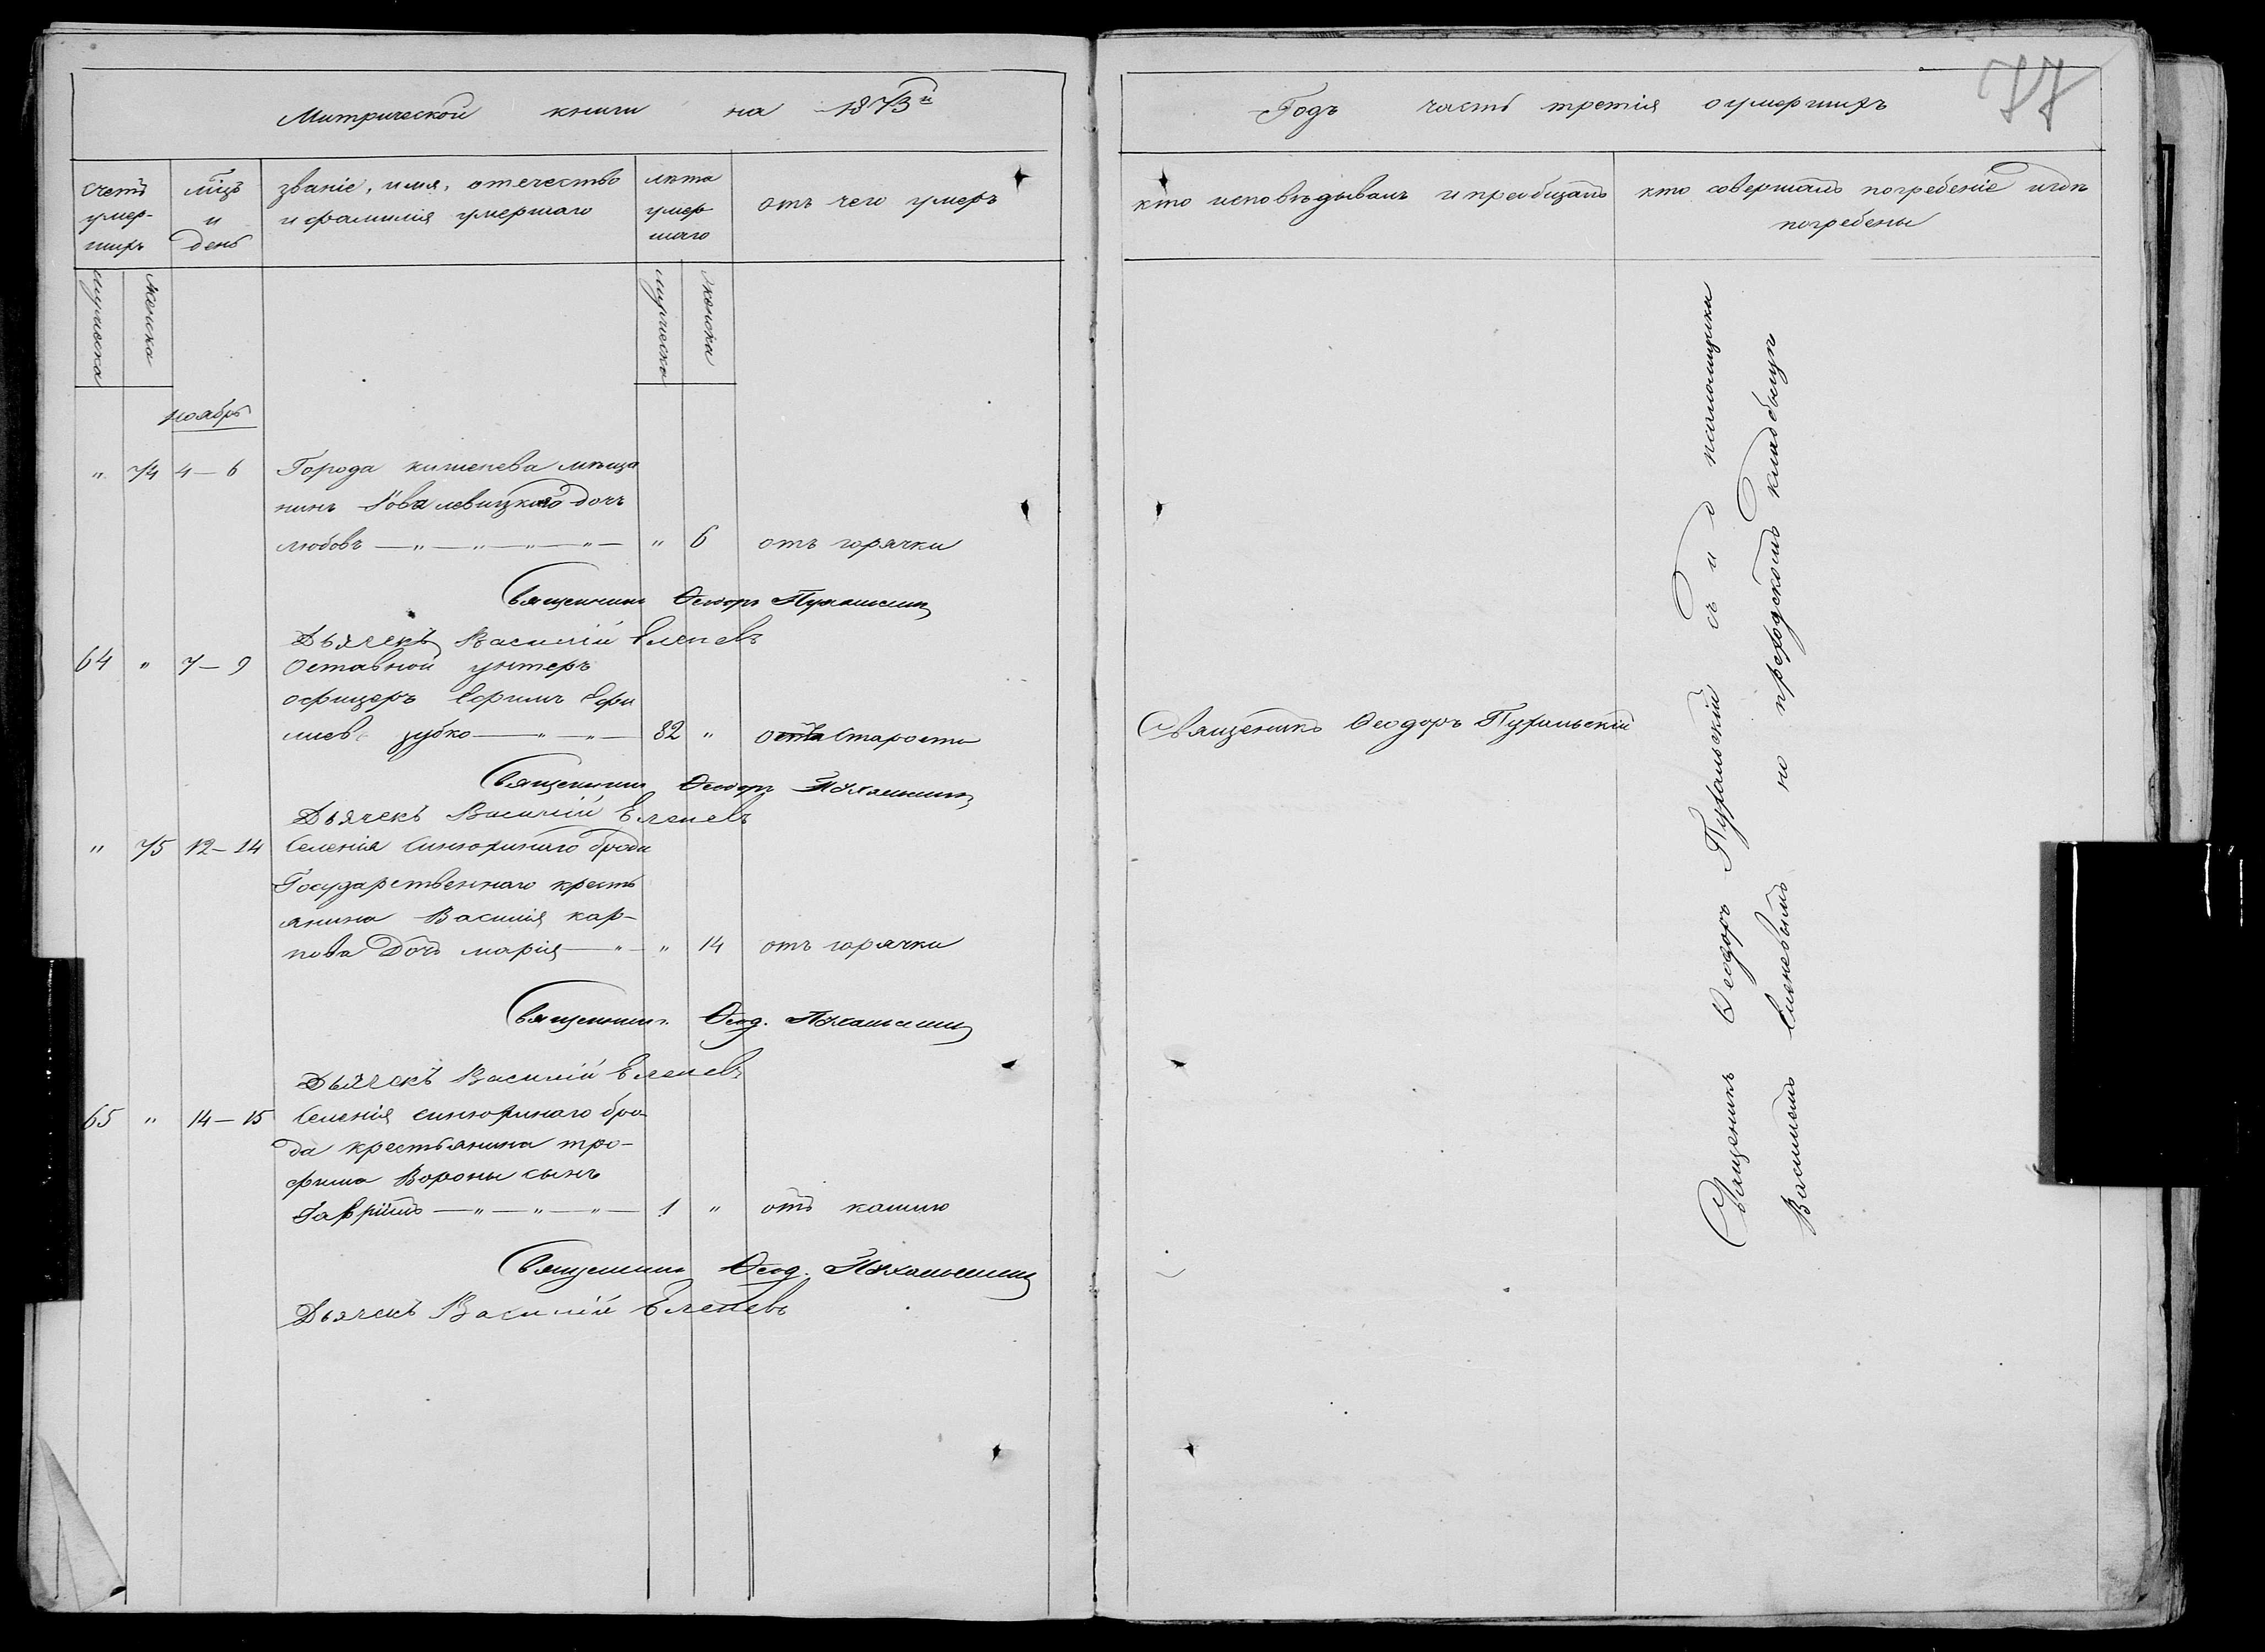 Митрической книги на 1873й
Годъ часть третія о умершихъ
77
счетъ умер-шихъ
мцъ и день
званіе, имя, отечество и фамилія умершаго
лѣта умер шаго
отъ чего умеръ
кто исповѣдывалъ и преобщалъ
кто совершалъ погребеніе и гдѣ погребены
мужеска
женска
мужеска
женска
ноябрь
" 74 4–6 Города кишенева мѣща
нинъ левицкаго дочь
Любовъ — " — " — " — " — " 6 отъ горячки
Священникъ Ѳеодоръ Пухальскій
Дьячекъ Василій Еленевъ
64 " 7–9 Оставной унтеръ
офицеръ Ефимъ Ефи
миевъ зубко — " — " — 82 " отъ Старости
Священикъ Ѳеодоръ Пухальскій
Священникъ Ѳеодоръ Пухальскій
Дьячекъ Василій Еленевъ
" 75 12–14 Селенія Синюхинаго брода
Государственнаго кресть
янина Василія кар-
пова Дочь марія — " — " 14 отъ горячки
Священникъ Ѳеод. Пухальскій
Дьячекъ Василій Еленевъ
65 " 14–15 Селенія синюхинаго бро-
да крестьянина тро-
фима Вороны сынъ
Гавріилъ — " — " — " — 1 " отъ кашлю
Священникъ Ѳеод. Пухальскій
Дьячекъ Василій Еленевъ
Священикъ Ѳеодоръ Пухальскій съ и д псаломщика
Василіемъ Еленевымъ на приходскомъ кладбищѣ